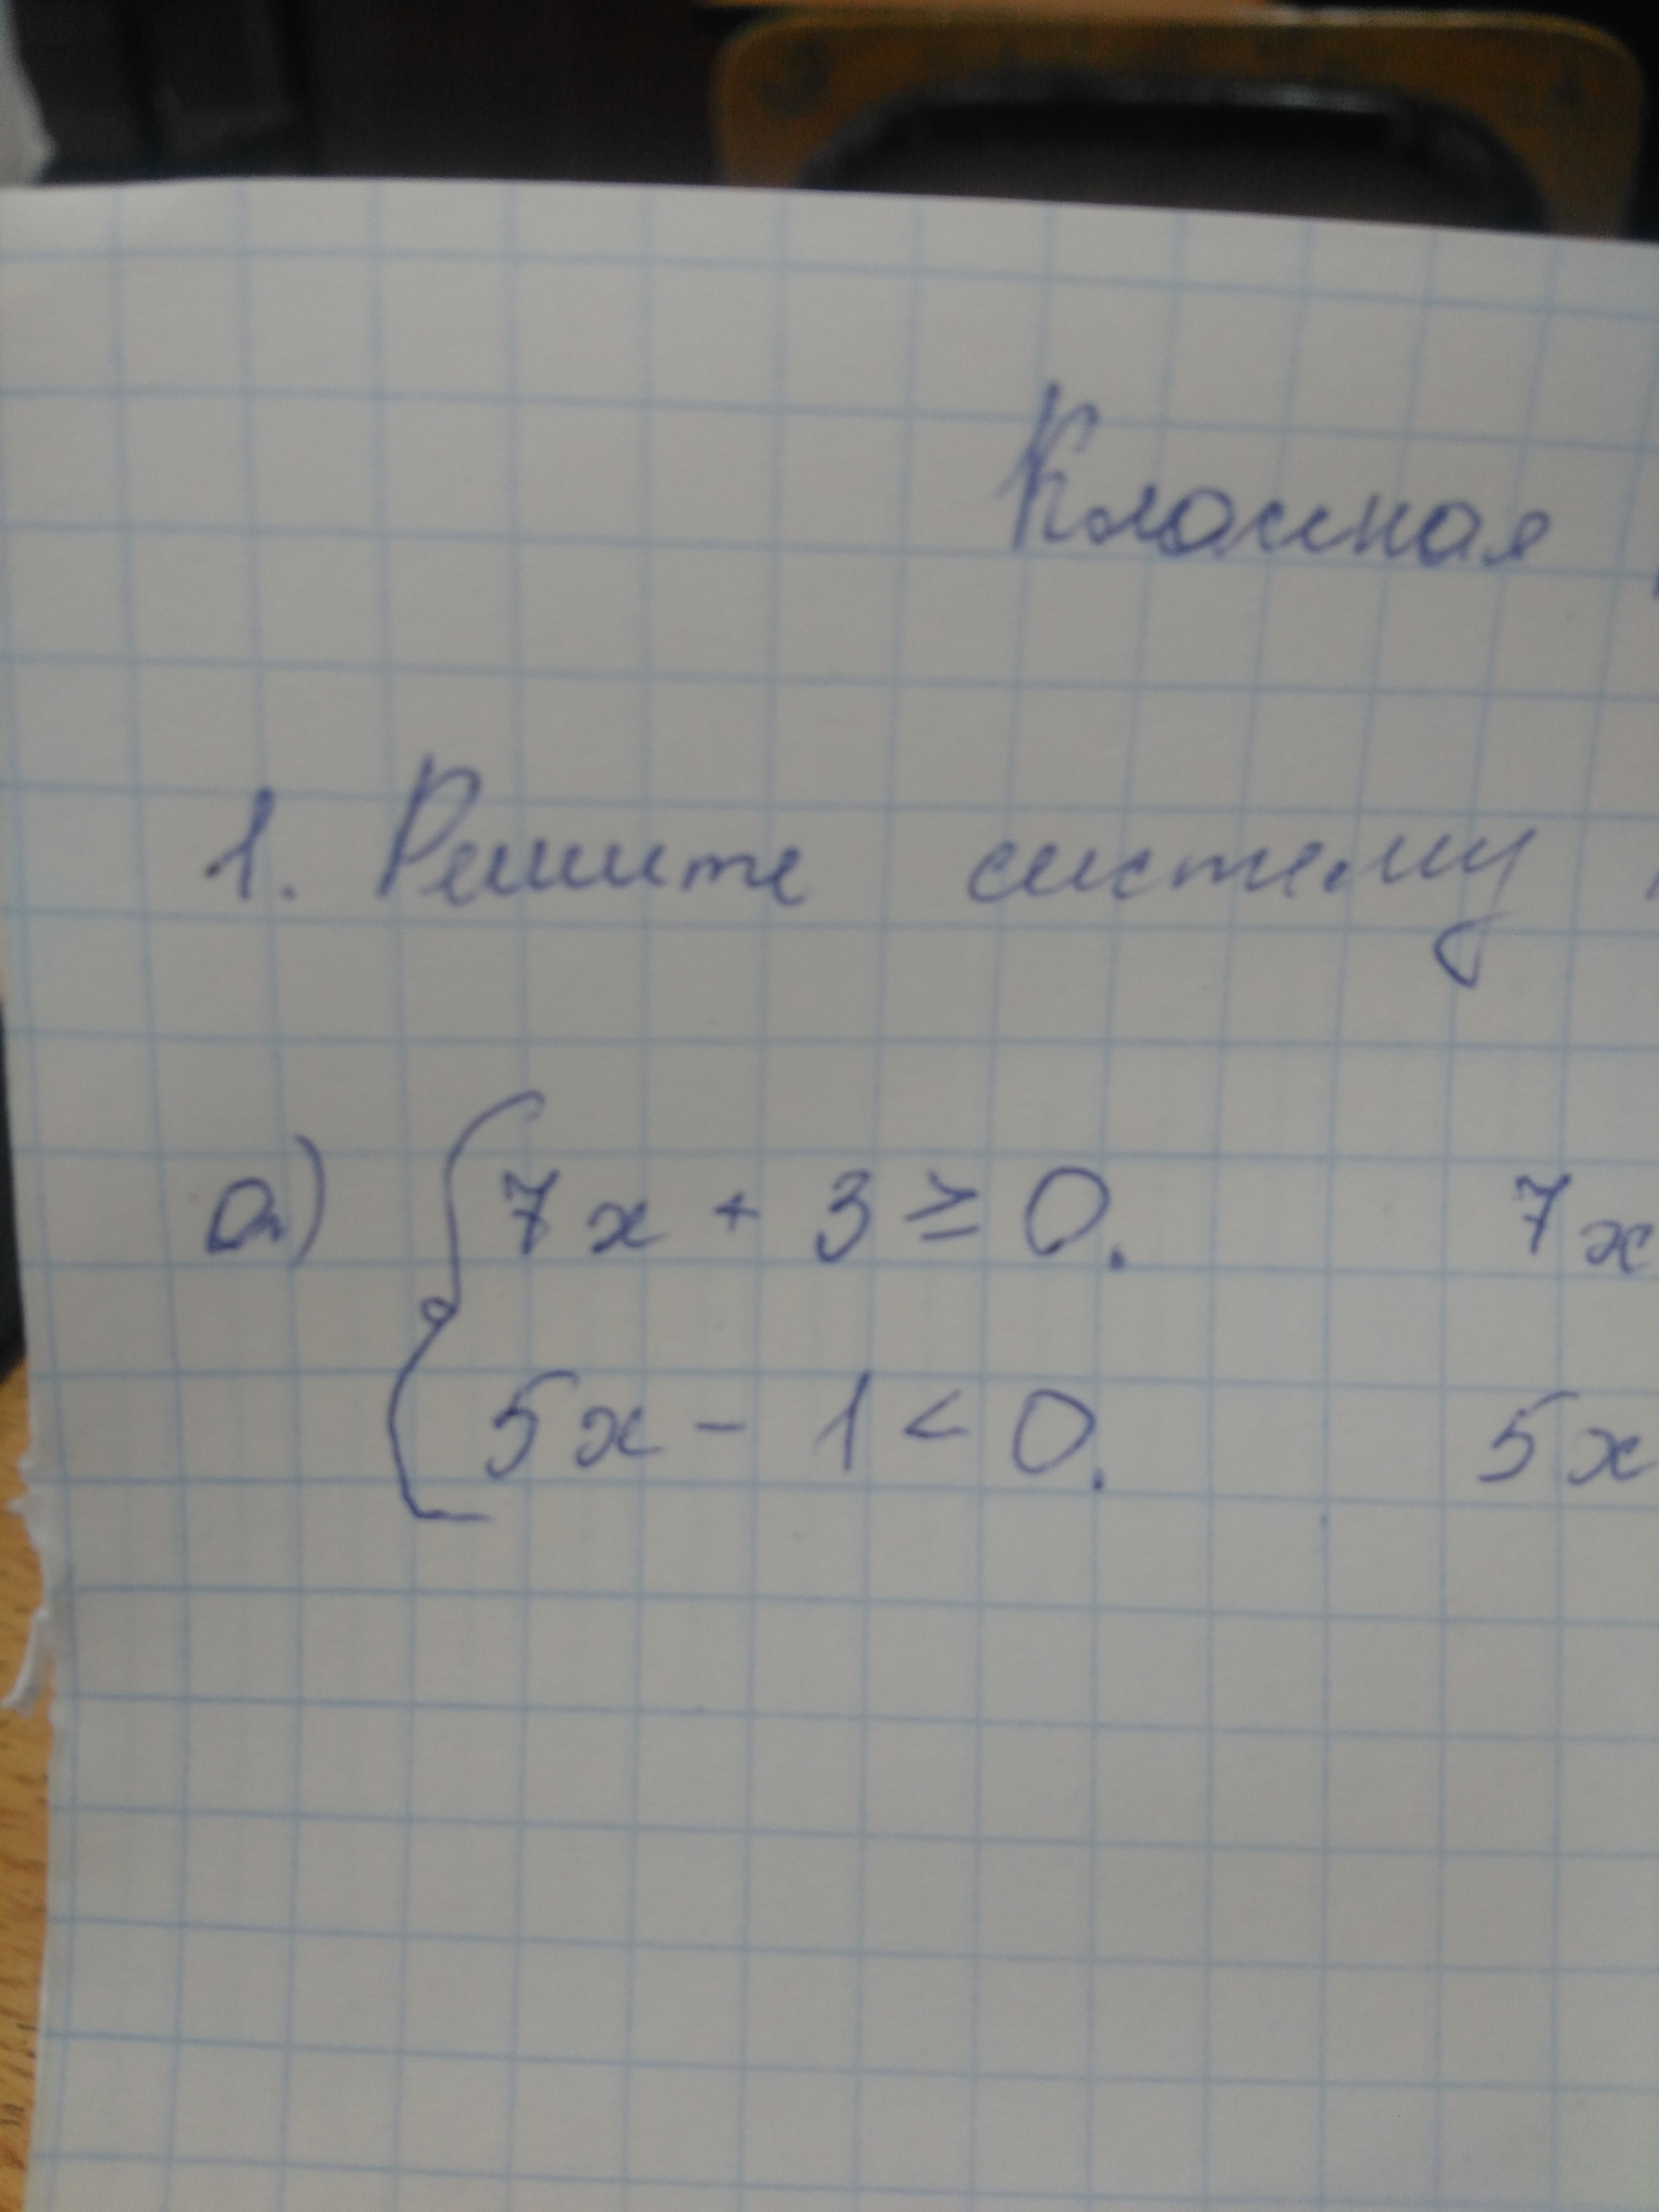 Классная
1. Решите систему
а) { 7x + 3 ≥ 0. 7x
5x - 1 < 0. 5x